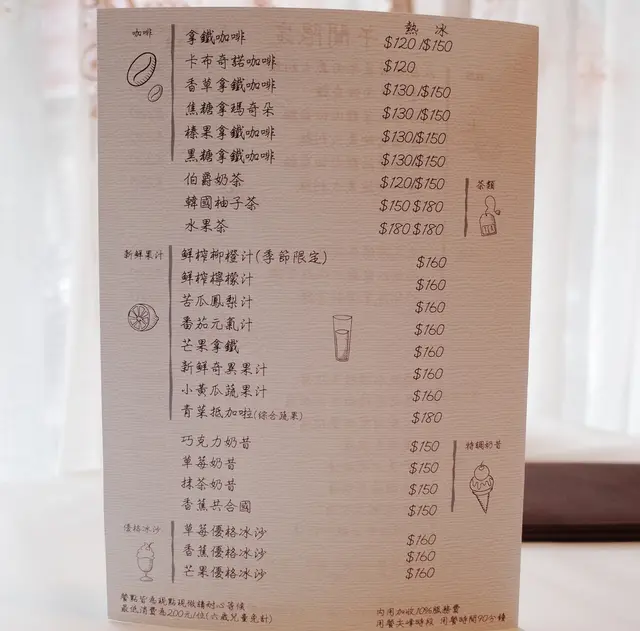 熱 冰
咖啡
拿鐵咖啡 $120/$150
卡布奇諾咖啡 $120
香草拿鐵咖啡 $130/$150
焦糖拿鐵瑪奇朵 $130/$150
榛果拿鐵咖啡 $130/$150
黑糖拿鐵咖啡 $130/$150
茶類
伯爵奶茶 $120/$150
韓國柚子茶 $150 $180
水果茶 $180 $180
新鮮果汁
鮮榨柳橙汁(季節限定) $160
鮮榨檸檬汁 $160
苦瓜鳳梨汁 $160
番茄元氣汁 $160
芒果拿鐵 $160
新鮮奇異果汁 $160
小黃瓜蔬果汁 $160
青菜抵加啦(綜合蔬果) $180
特調奶昔
巧克力奶昔 $150
草莓奶昔 $150
抹茶奶昔 $150
香蕉共合國 $150
優格冰沙
草莓優格冰沙 $160
香蕉優格冰沙 $160
芒果優格冰沙 $160
餐點皆為現點現做請耐心等候
最低消費為200元/位(六歲兒童免計)
內用加收10%服務費
用餐尖峰時段 用餐時間90分鐘